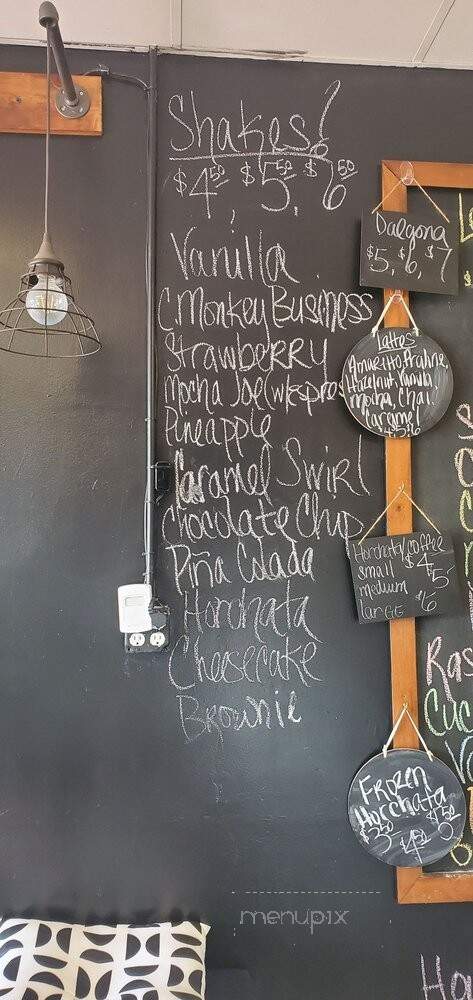 Shakes!
$4.50, $5.50, $6.50
Vanilla
C.Monkey Business
Strawberry
Mocha Joe (w/espres
Pineapple
Caramel Swirl
Chocolate Chip
Piña Colada
Horchata
Cheesecake
Brownie
Dalgona
$5, $6, $7
Lattes
Amaretto, Praline,
Hazelnut, Vanilla
Mocha, Chai,
Caramel
Horchata/coffee
small $4
medium $5
Large $6
Frozen
Horchata
$3.50 $4.50 $5.50
Ras
Cuc
Ho
menupix